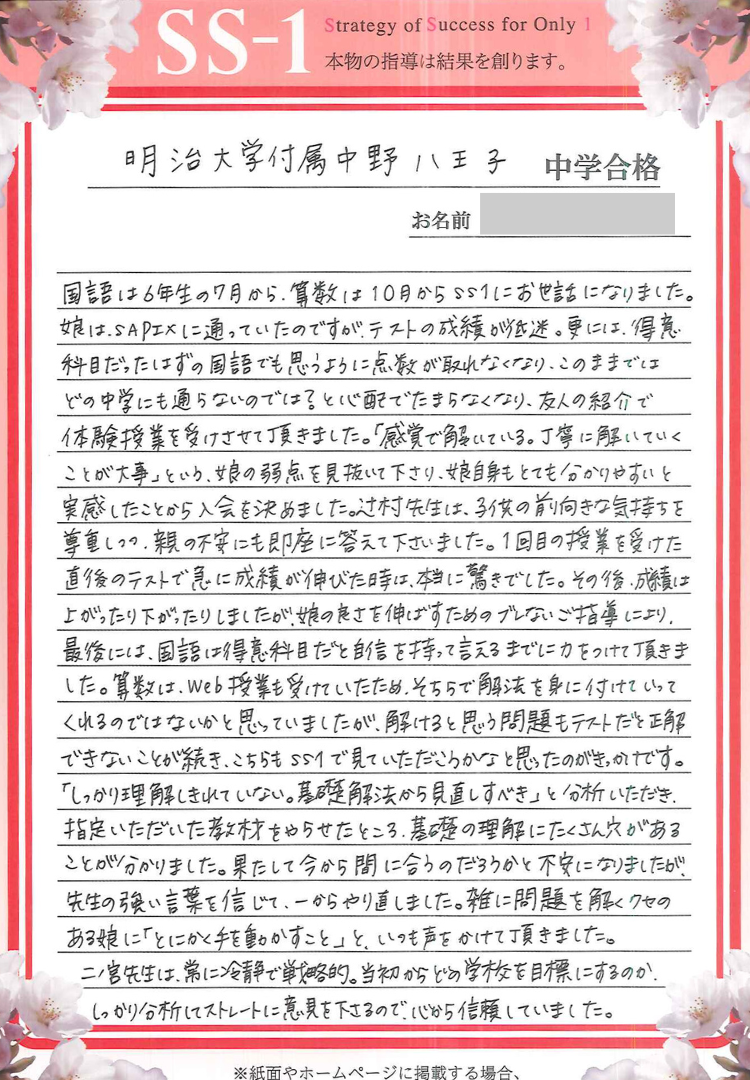 SS-1
Strategy of Success for Only 1
本物の指導は結果を創ります。
明治大学付属中野八王子 中学合格
お名前
国語は6年生の7月から、算数は10月からSS1にお世話になりました。
娘は、SAPIXに通っていたのですが、テストの成績が低迷。更には、得意
科目だったはずの国語でも思うように点数が取れなくなり、このままでは
どの中学にも通らないのでは?と心配でたまらなくなり、友人の紹介で
体験授業を受けさせて頂きました。「感覚で解いている。丁寧に解いていく
ことが大事」という、娘の弱点を見抜いて下さり、娘自身もとても分かりやすいと
実感したことから入会を決めました。辻村先生は、子供の前向きな気持ちを
尊重しつつ、親の不安にも即座に答えて下さいました。1回目の授業を受けた
直後のテストで急に成績が伸びた時は、本当に驚きでした。その後、成績は
上がったり下がったりしましたが、娘の良さを伸ばすためのブレないご指導により、
最後には、国語は得意科目だと自信を持って言えるまでに力をつけて頂きま
した。算数は、Web授業も受けていたため、そちらで解法を身に付けていって
くれるのではないかと思っていましたが、解けると思う問題もテストだと正解
できないことが続き、こちらもSS1で見ていただこうかなと思ったのがきっかけです。
「しっかり理解しきれていない。基礎解法から見直しすべき」と分析いただき、
指定いただいた教材をやらせたところ、基礎の理解にたくさん穴がある
ことが分かりました。果たして今から間に合うのだろうかと不安になりましたが、
先生の強い言葉を信じて、一からやり直しました。雑に問題を解くクセの
ある娘に「とにかく手を動かすこと」と、いつも声をかけて頂きました。
二ノ宮先生は、常に冷静で戦略的。当初からどの学校を目標にするのか、
しっかり分析してストレートに意見を下さるので、心から信頼していました。
※紙面やホームページに掲載する場合、